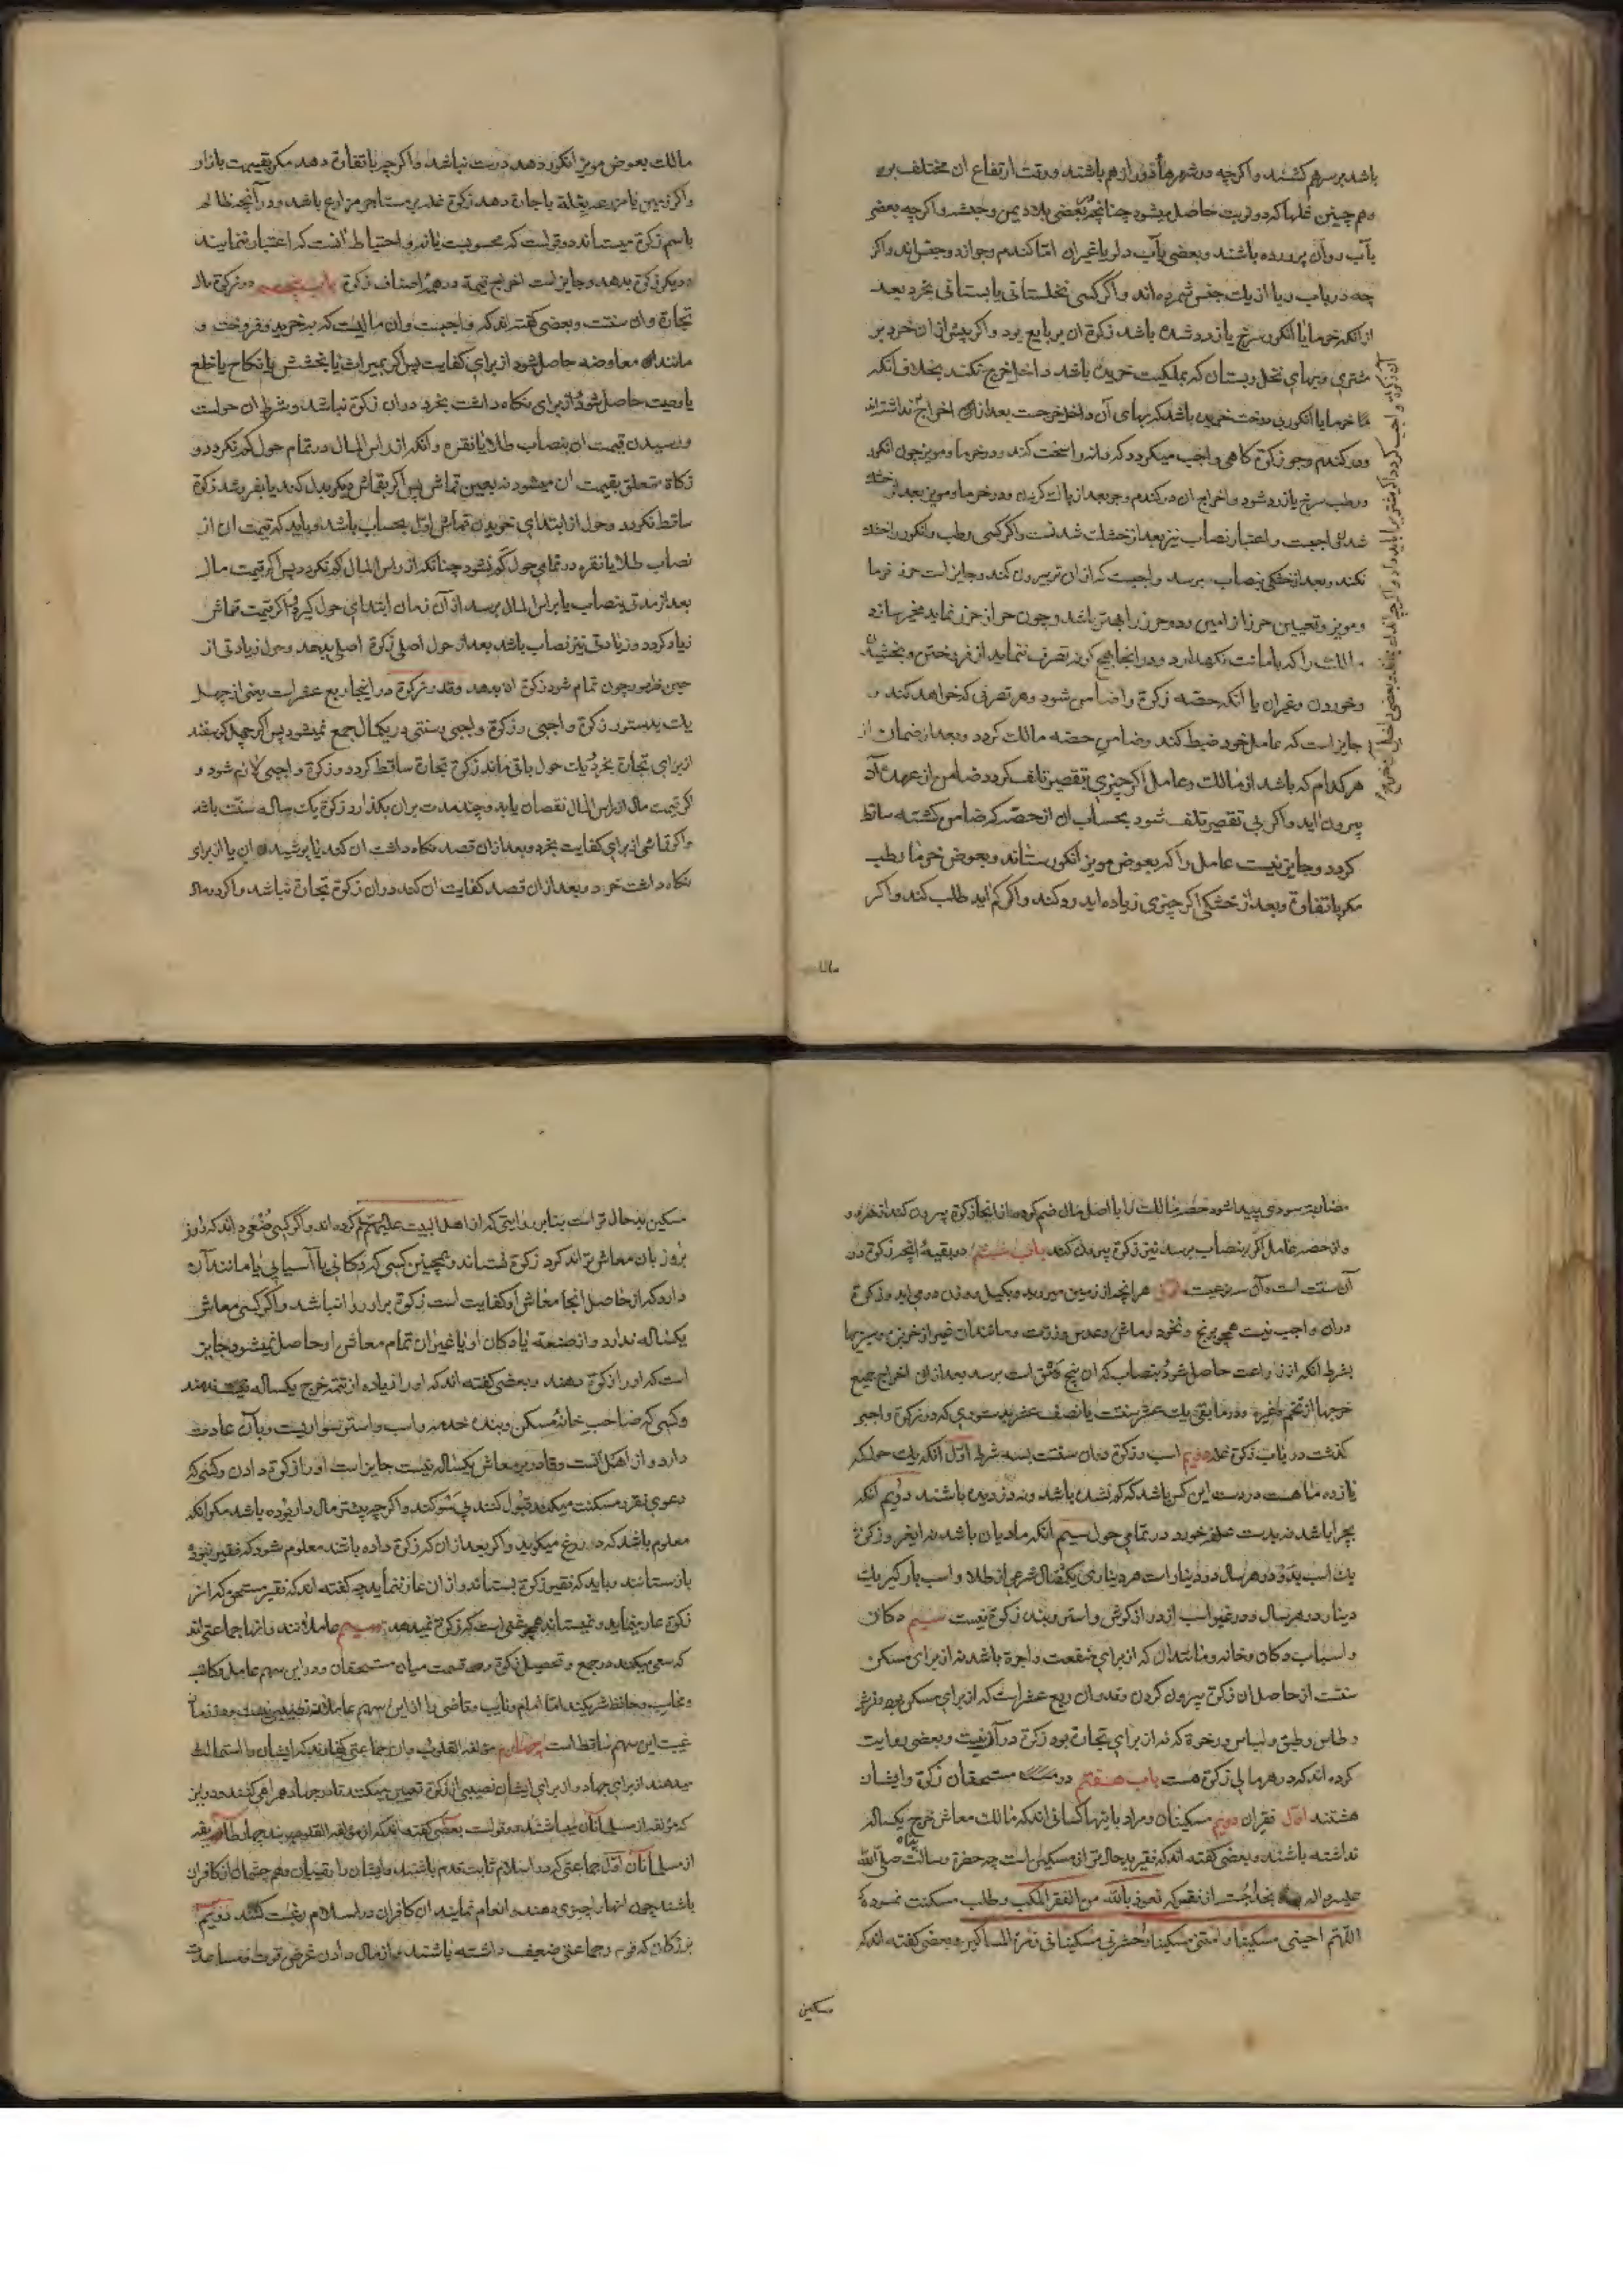 باشد بر سر هم کشند و اگر چه در شهرها دور از هم باشند و وقت ارتفاع ان مختلف بود
و هم چنین غلها که دو نوبت حاصل میشود چنانچه بعضی بلاد یمن و حبشه و اگر چه بعضی
بآب روان پرورده باشند و بعضی بآب دلو یا غیر ان اما کندم و جو از دو جنس اند و اگر
چه در باب ربا از یک جنس شمرده اند و اگر کسی نخلستانی یا بستانی بخرد بعد
از انکه خرما یا انکور سرخ یا زرد شده باشد زکوة ان بر بایع بود و اگر پیش از ان خرد بر
مشتری و بهای نخل و بستان که بملکیت خریده باشد داخل خرج نکند بخلاف انکه
خرما یا انکور بی درخت خریده باشد که بهای آن داخل خرجست بعد از ان اخراج
و در کندم و جو زکوة کاهی واجب میکردد که دانه را سخت کند و در خرما و مویز چون انکور
و رطب سرخ یا زرد شود و اخراج ان در کندم و جو بعد از پاک کردن و در خرما و مویز بعد از خشک
شدن واجبست و اعتبار نصاب نیز بعد از خشک شدنست و اگر کسی رطب و انکور را خشک
نکند و بعد از خشکی بنصاب برسد واجبست که از ان بیرون کند و جایز است حرز خرما
و مویز و تعیین حرز از امین و دو حرز را بهتر باشد و چون حراز حرز نماید مخیر سازد
مالک را که بامانت نکهدارد و در انجا هیچ کونه تصرف ننماید از فروختن و بخشیدن
و خوردن و غیر ان یا انکه حصه زکوة را ضامن شود و هر تصرفی که خواهد کند و
جایز است که عامل خود ضبط کند و ضامن حصه مالک کردد و بعد از ضمان از
هر کدام که باشد از مالک و عامل اگر چیزی بتقصیر تلف کردد ضامن از عهده آن
بیرون اید و اگر بی تقصیر تلف شود بحساب ان از حصه که ضامن کشته ساقط
کردد و جایز نیست عامل را که بعوض مویز انکور ستاند و بعوض خرما رطب
مکر با تفاوة و بعد از خشکی اگر چیزی زیاده اید رد کند و اگر کم اید طلب کند و اگر
مالک
مالک بعوض مویز انکور دهد درست نباشد و اگر چه با تفاوة دهد مکر بقیمت بازار
و اگر زمین با مزرعه بغله باجاره دهد زکوة غله بر مستاجر مزارع باشد و در آنچه ظالم
باسم زکوة میستاند دو قولست که محسوبست یا نه و احتیاط انست که اعتبار ننمایند
و دیکر زکوة بدهد و جایز است اخراج قیمة در همه اصناف زکوة باب پنجم در زکوة مال
تجارة و ان سنتست و بعضی کفته اند که واجبست و ان مالیست که بخرید و فروخت و
مانند ان معاوضه حاصل شود از برای کفایت پس اگر بمیراث یا بخشش یا نکاح یا خلع
یا وصیت حاصل شود یا از برای نکاه داشت بخرد در ان زکوة نباشد و شرط ان حولست
و رسیدن قیمت ان بنصاب طلا یا نقره و انکه از راس المال در تمام حول کم نکردد و
زکاة متعلق بقیمت ان میشود نه بعین قماش پس اگر بقماش دیکر بدل کند یا بفروشد زکوة
ساقط نکردد و حول از ابتدای خریدن قماش اول بحساب باشد و باید که قیمت ان از
نصاب طلا یا نقره در تمامی حول کم نشود چنانکه از راس المال کم نکردد پس اگر قیمت مال
بعد از مدتی بنصاب یا براس المال برسد از آن زمان ابتدای حول کیرد و اگر قیمت قماش
زیاد کردد و زیادتی نیز نصاب باشد بعد از حول اصلی زکوة اصلی بدهد و حول زیادتی از
حین ظهور چون تمام شود زکوة ان بدهد و قدر زکوة در اینجا ربع عشر است یعنی از چهل
یک بدستور زکوة واجبی و زکوة واجبی و سنتی در یکمال جمع نمیشود پس اگر چهل کوسفند
از برای تجارة بخرد و یک حول باقی ماند زکوة تجارة ساقط کردد و زکوة واجبی لازم شود و
اگر قیمت مال از راس المال نقصان یابد و چند مدت بران بکذرد زکوة یک ساله سنت باشد
و اگر قماشی از برای کفایت بخرد و بعد از ان قصد نکاه داشت ان کند یا پوشیدن ان یا از برای
نکاه داشت خرد و بعد از ان قصد کفایت ان کند در ان زکوة تجارة نباشد و اگر در مال
مضاربه سودی پیدا شود حصه مالک را با اصل مال ضم کرده از انجا زکوة بیرون کند
و از حصه عامل اگر بنصاب برسد نیز زکوة بیرون کند باب ششم در بقیه آنچه زکوة در
آن سنت است و آن سه نوعست اول هر انچه از زمین میروید و بکیل و وزن در می اید و زکوة
در ان واجب نیست همچو برنج و نخود و ماش و عدس و ذرت و مانند ان غیر از خربزه و سبزیها
بشرط انکه از زراعت حاصل شود و بنصاب که ان پنج وسق است برسد بعد از ان اخراج جمیع
خرجها از تخم و غیره و در مابقی یک عشر سنتست یا نصف عشر بدستوری که در زکوة واجبی
کذشت در باب زکوة غله دویم اسب و زکوة در ان سنتست بسه شرط اول انکه یک حول که
یازده ماهست در دست این کس باشد که کم نشده باشد و نه دزدیده باشند دویم انکه
بچرا باشد نه بدست علف خورد در تمامی حول سیم انکه مادیان باشد نه ایغر و زکوة
یک اسب بدو در هر سال دو دینار است هر دیناری یکمثقال شرعی از طلا و اسب بارکیر یک
دینار در هر سال و در غیر اسب از دراز کوش و استر و بنده زکوة نیست سیم دکان
و اسباب دکان و خانه و مانند ان که از برای منفعت و اجرة باشد نه از برای مسکن
سنتست از حاصل ان زکوة بیرون کردن و قدر ان ربع عشر است که از برای مسکن بود و فرش
و طاس و طبق و لباس و رخوة که نه از برای تجارة بود زکوة در آن نیست و بعضی روایت
کرده اند که در هر مالی زکوة هست باب هفتم در مستحقان زکوة و ایشان
هشتند اول فقیران دویم مسکینان و مراد باینها کسانی اند که مالک معاش خرج یکساله
نداشته باشند و بعضی کفته اند که فقیر بدحال تر از مسکین است چه حضرة رسالت پناه صلی الله
علیه و اله بخدا جست از فقر که نعوذ بالله من الفقر المکب و طلب مسکنت نموده که
اللهم احینی مسکینا و امتنی مسکینا و احشرنی مسکینا فی زمرة المساکین و بعضی کفته اند که
مسکین
مسکین بدحال تر است بنابر روایتی که از اهل البیت علیهم السلم کرده اند و اگر کسی صنعتی داند که روز
بروز بان معاش تواند کرد زکوة نستاند و همچنین کسی که دکانی یا آسیایی یا مانند آن
دارد که از حاصل انجا معاش او کفایت است زکوة بر او روا نباشد و اگر کسی معاش
یکساله ندارد و از صنعت یا دکان او یا غیر ان تمام معاش او حاصل نمیشود جایز
است که او را زکوة دهند و بعضی کفته اند که او را زیاده از تتمه خرج یکساله ندهند
و کسی که صاحب خانه مسکن و بنده خدمه و اسب و استر سواریست و بآن عادت
دارد و از اهل انست و قادر بر معاش یکساله نیست جایز است او را زکوة دادن و کسی که
دعوی فقر و مسکنت میکند قبول کنند بی سوکند و اگر چه پیشتر مال دار بوده باشد مکر انکه
معلوم باشد که دروغ میکوید و اگر بعد از ان که زکوة داده باشند معلوم شود که فقیر نبوده
باز ستانند و باید که فقیر زکوة بستاند و از ان عار ننماید چه کفته اند که فقیر مستحق که از
زکوة عار مینماید و نمیستاند همچو غنی است که زکوة نمیدهد سیم عاملانند و انها جماعتی اند
که سعی میکنند در جمع و تحصیل زکوة و قسمت میان مستحقان و در این سهم عامل و کاتب
و محاسب و حافظ شریکند اما امام و نایب و قاضی را از این سهم عاملان نصیبی نیست و در زمان
غیبت این سهم ساقط است چهارم مؤلفة القلوب و ان جماعتی کفارند که ایشان را استمالت
میدهند از برای جهاد و از برای ایشان نصیبی از زکوة تعیین میکنند تا در جهاد همراهی کنند و در این
که مؤلفه از مسلمانان میباشند دو قولست بعضی کفته اند که از مؤلفة القلوب چهار طایفه
از مسلمانان اول جماعتی که در اسلام ثابت قدم باشند و ایشان را رقیبان و هم چشمان از کافران
باشند چون انها را چیزی دهند و انعام نمایند ان کافران در اسلام رغبت کنند دویم
بزرکان که قوم و جماعتی ضعیف داشته باشند و از مال دادن غرض قوت و مساعدت